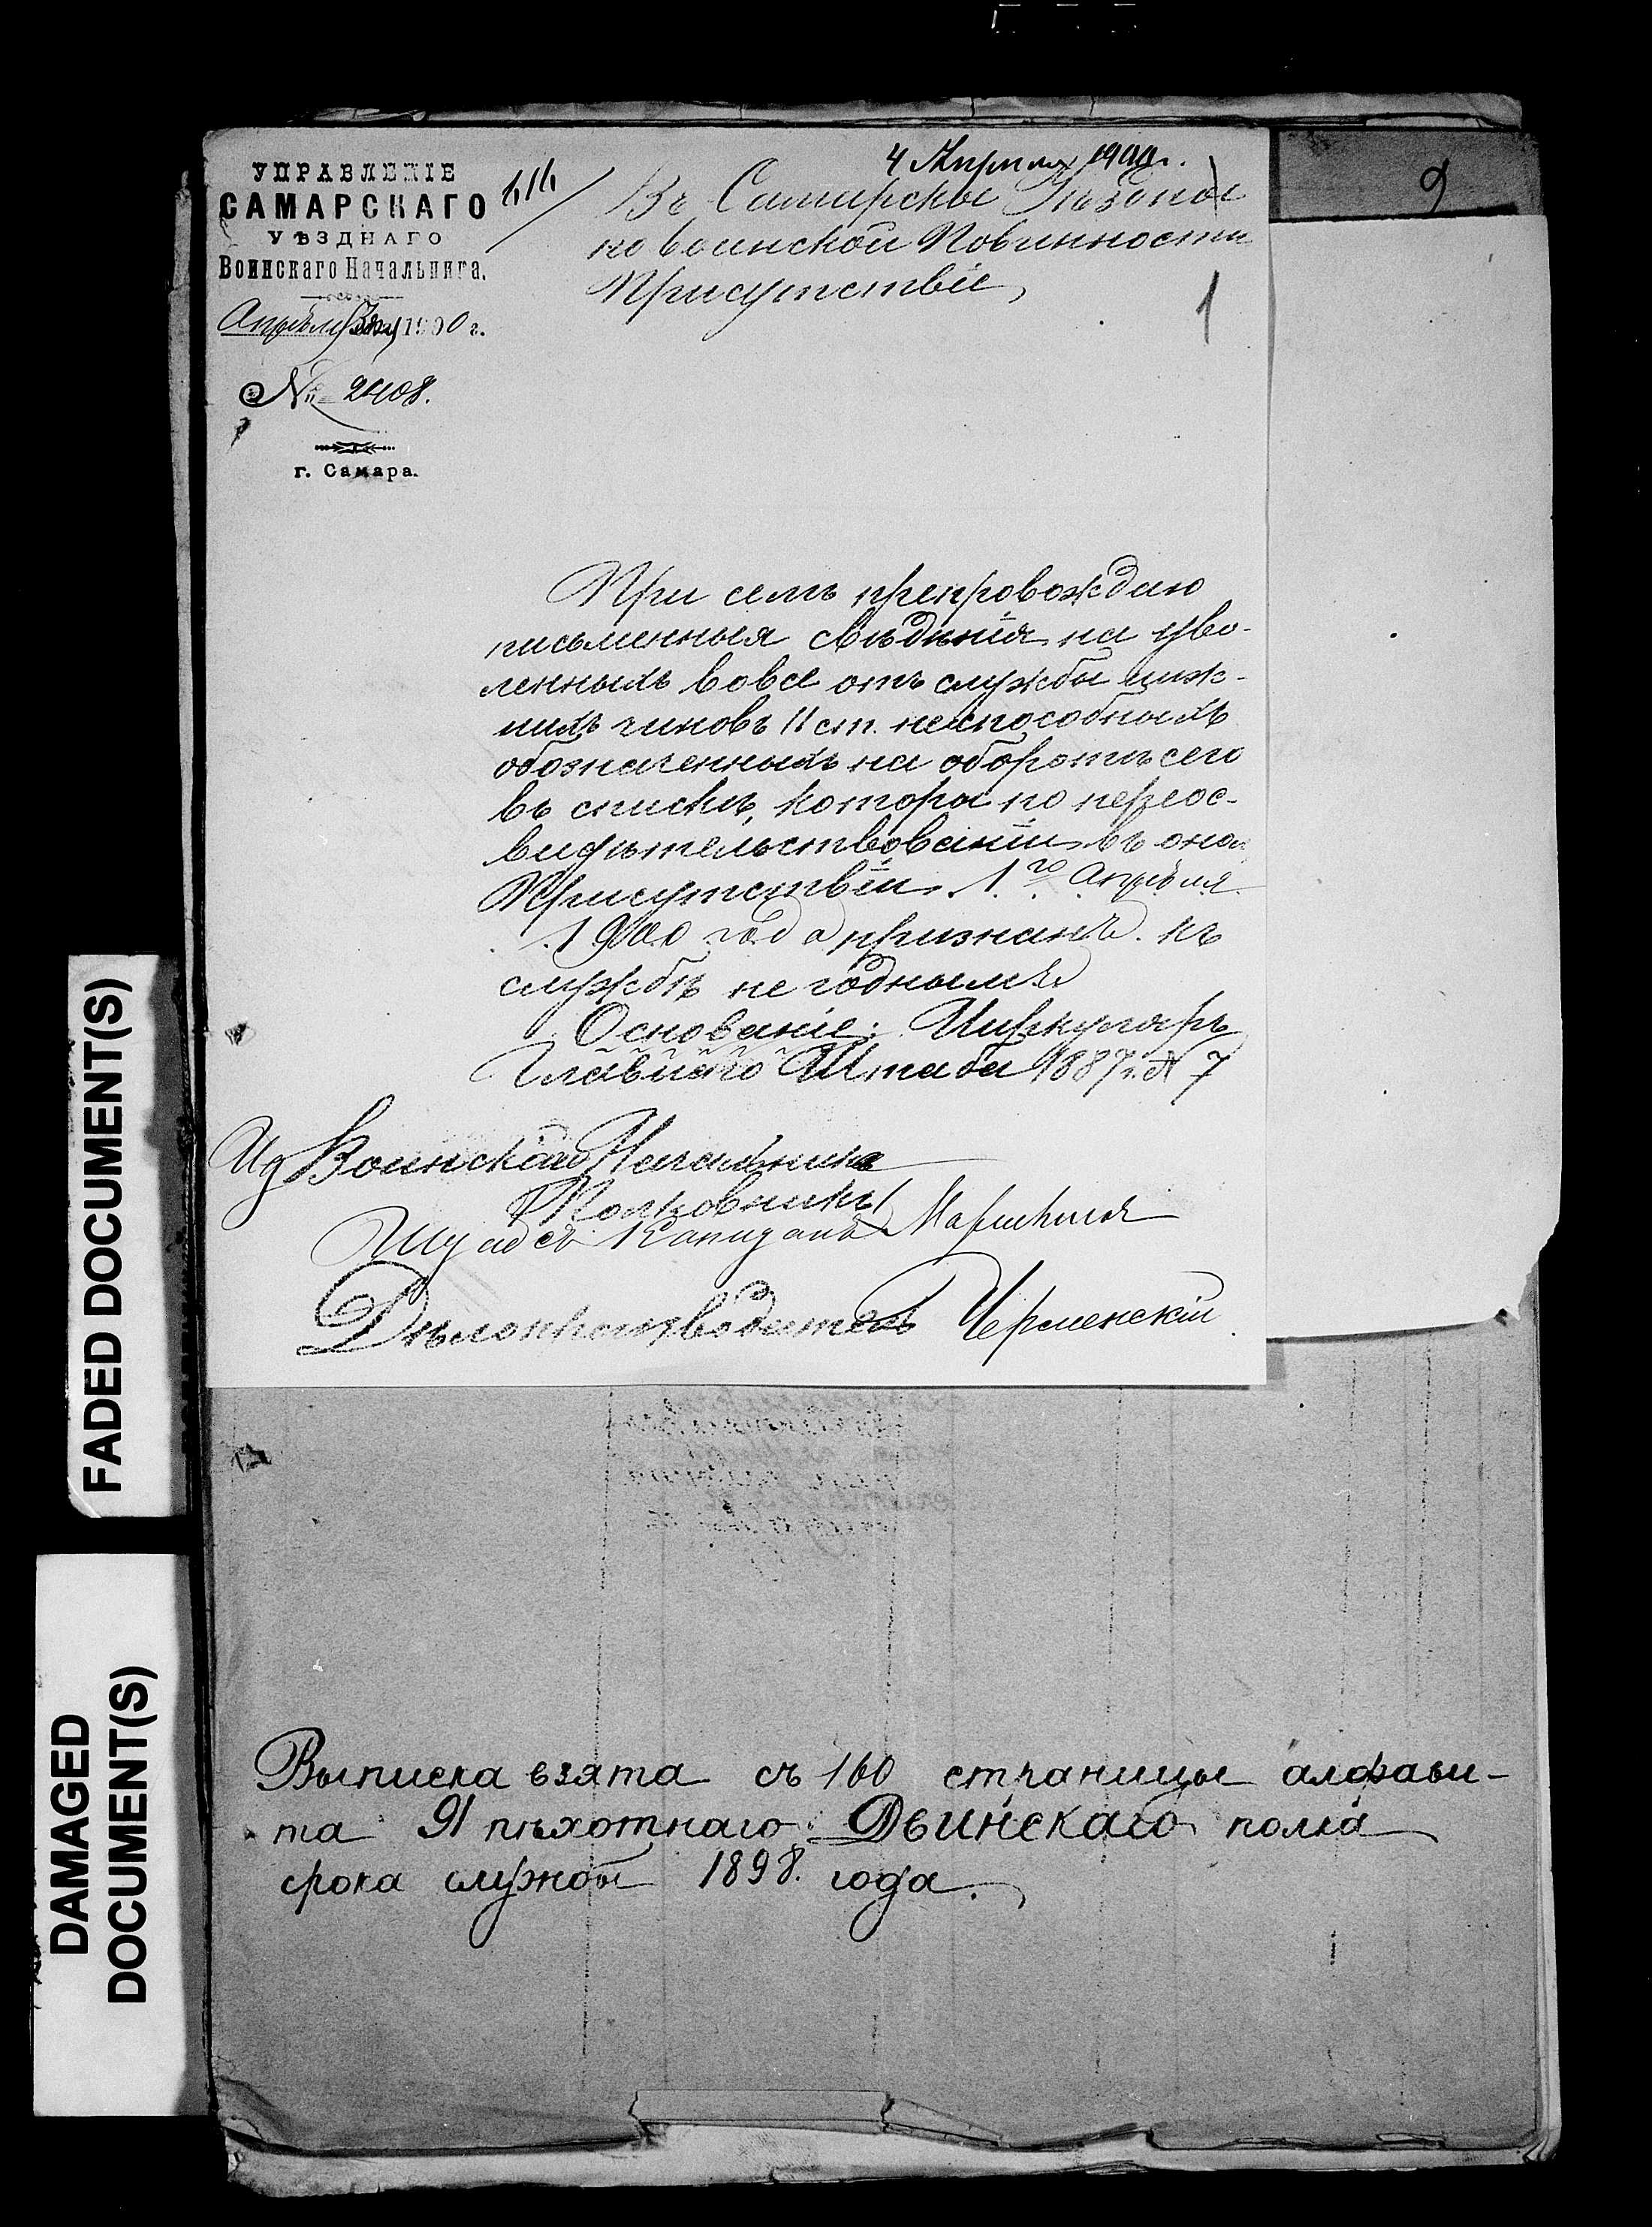 4 Апрѣля 1900 г.
УПРАВЛЕНІЕ
САМАРСКАГО
УѢЗДНАГО
Воинскаго Начальника.
Апрѣля 1900 г.
№ 2408.
г. Самара.
Въ Самарское Уѣздное
по воинской Повинности
Присутствіе,
1
9
При семъ препровождаю
письменныя свѣдѣнія на уво-
ленныхъ вовсе отъ службы ниж-
нихъ чиновъ II ст. неспособныхъ
обозначенныхъ на оборотѣ сего
въ спискѣ, которы по переос-
видѣтельствованіи въ оном
Присутствіи 1го Апрѣля
1900 года признанъ къ
службѣ не годнымъ
Основаніе: Циркуляръ
Главнаго Штаба 1887 г. № 7
Ид Воинскаго Начальника
Полковникъ
Капитанъ
Дѣлопроизводитель Черменскій
Выписка взята съ 160 страницы алфави-
та 91 пѣхотнаго Двинскаго полка
срока службы 1898 года.
FADED DOCUMENT(S)
DAMAGED
DOCUMENT(S)